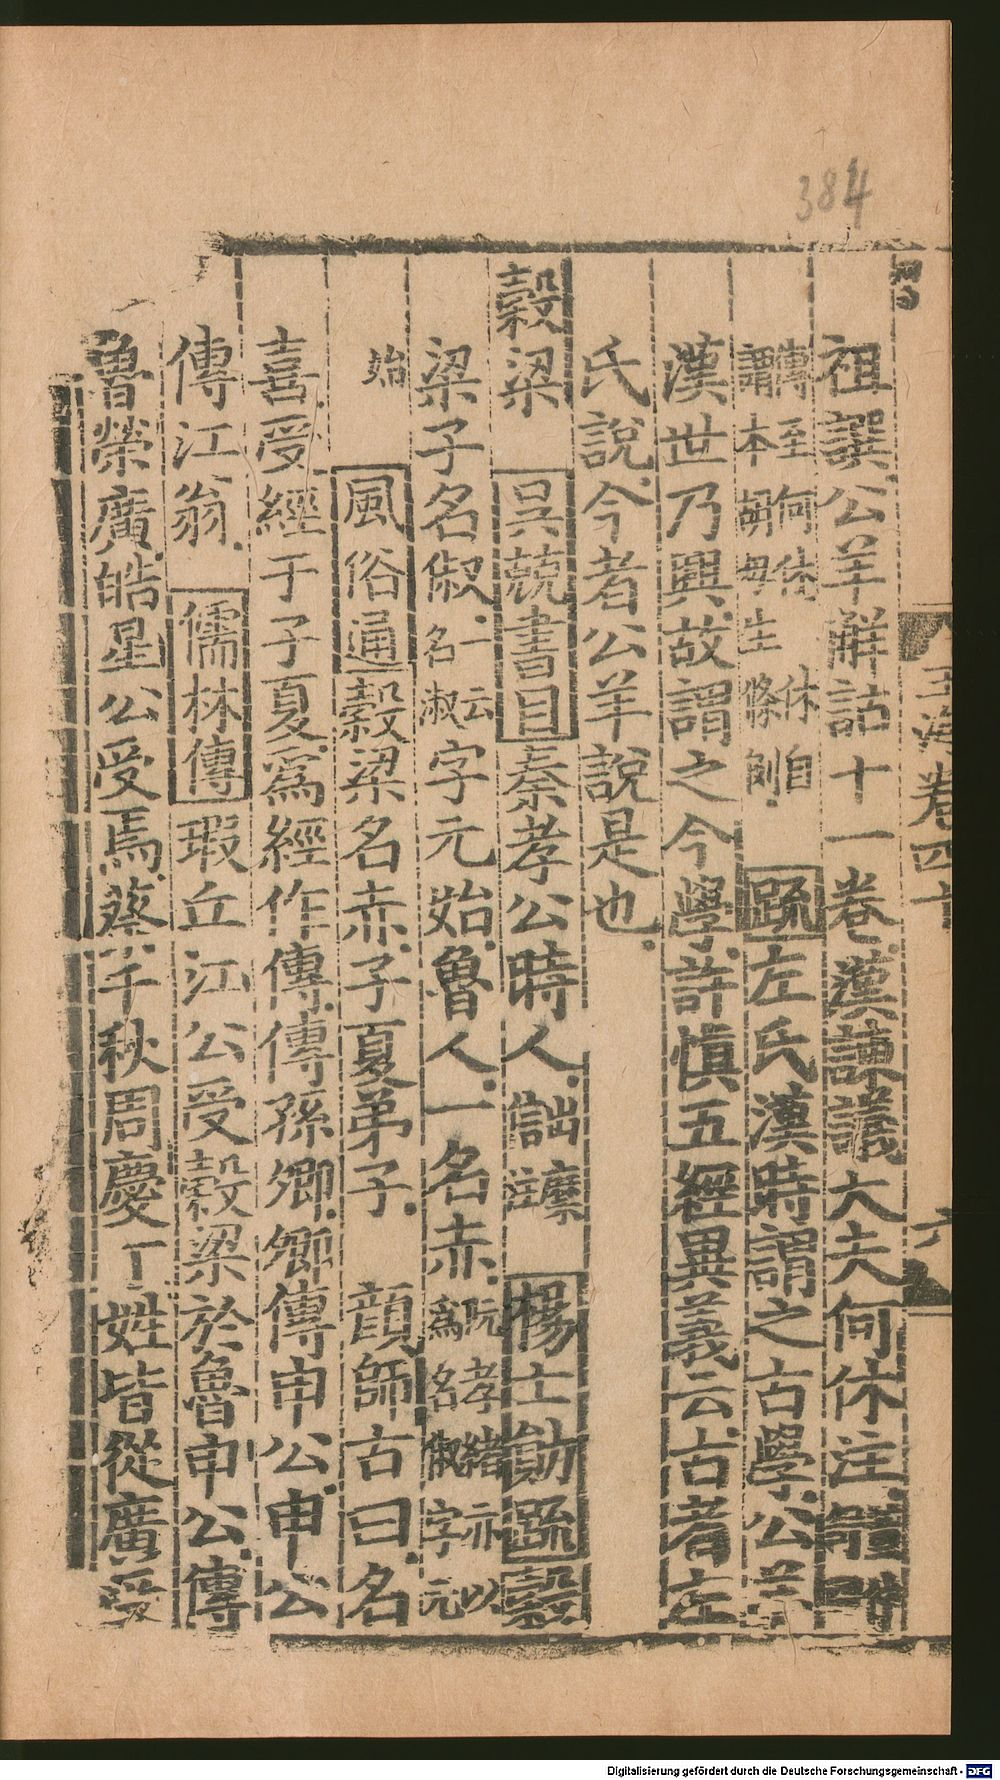 384
玉海卷四十
六
祖譔公羊解詁十一卷漢諫議大夫何休注
傳至何休休自
謂本胡毋生條例
疏左氏漢時謂之古學公羊
漢世乃興故謂之今學許慎五經異義云古者左
氏說今者公羊說是也
穀梁 吳兢書目秦孝公時人
糜信注
楊士勛疏穀
梁子名俶
一云名淑
字元始魯人一名赤
阮孝緒亦以為名俶字元
始
風俗通穀梁名赤子夏弟子 顏師古曰名
喜受經于子夏為經作傳傳孫卿卿傳申公申公
傳江翁 儒林傳瑕丘江公受穀梁於魯申公傳
魯榮廣皓星公受焉蔡千秋周慶丁姓皆從廣受
Digitalisierung gefördert durch die Deutsche Forschungsgemeinschaft - DFG